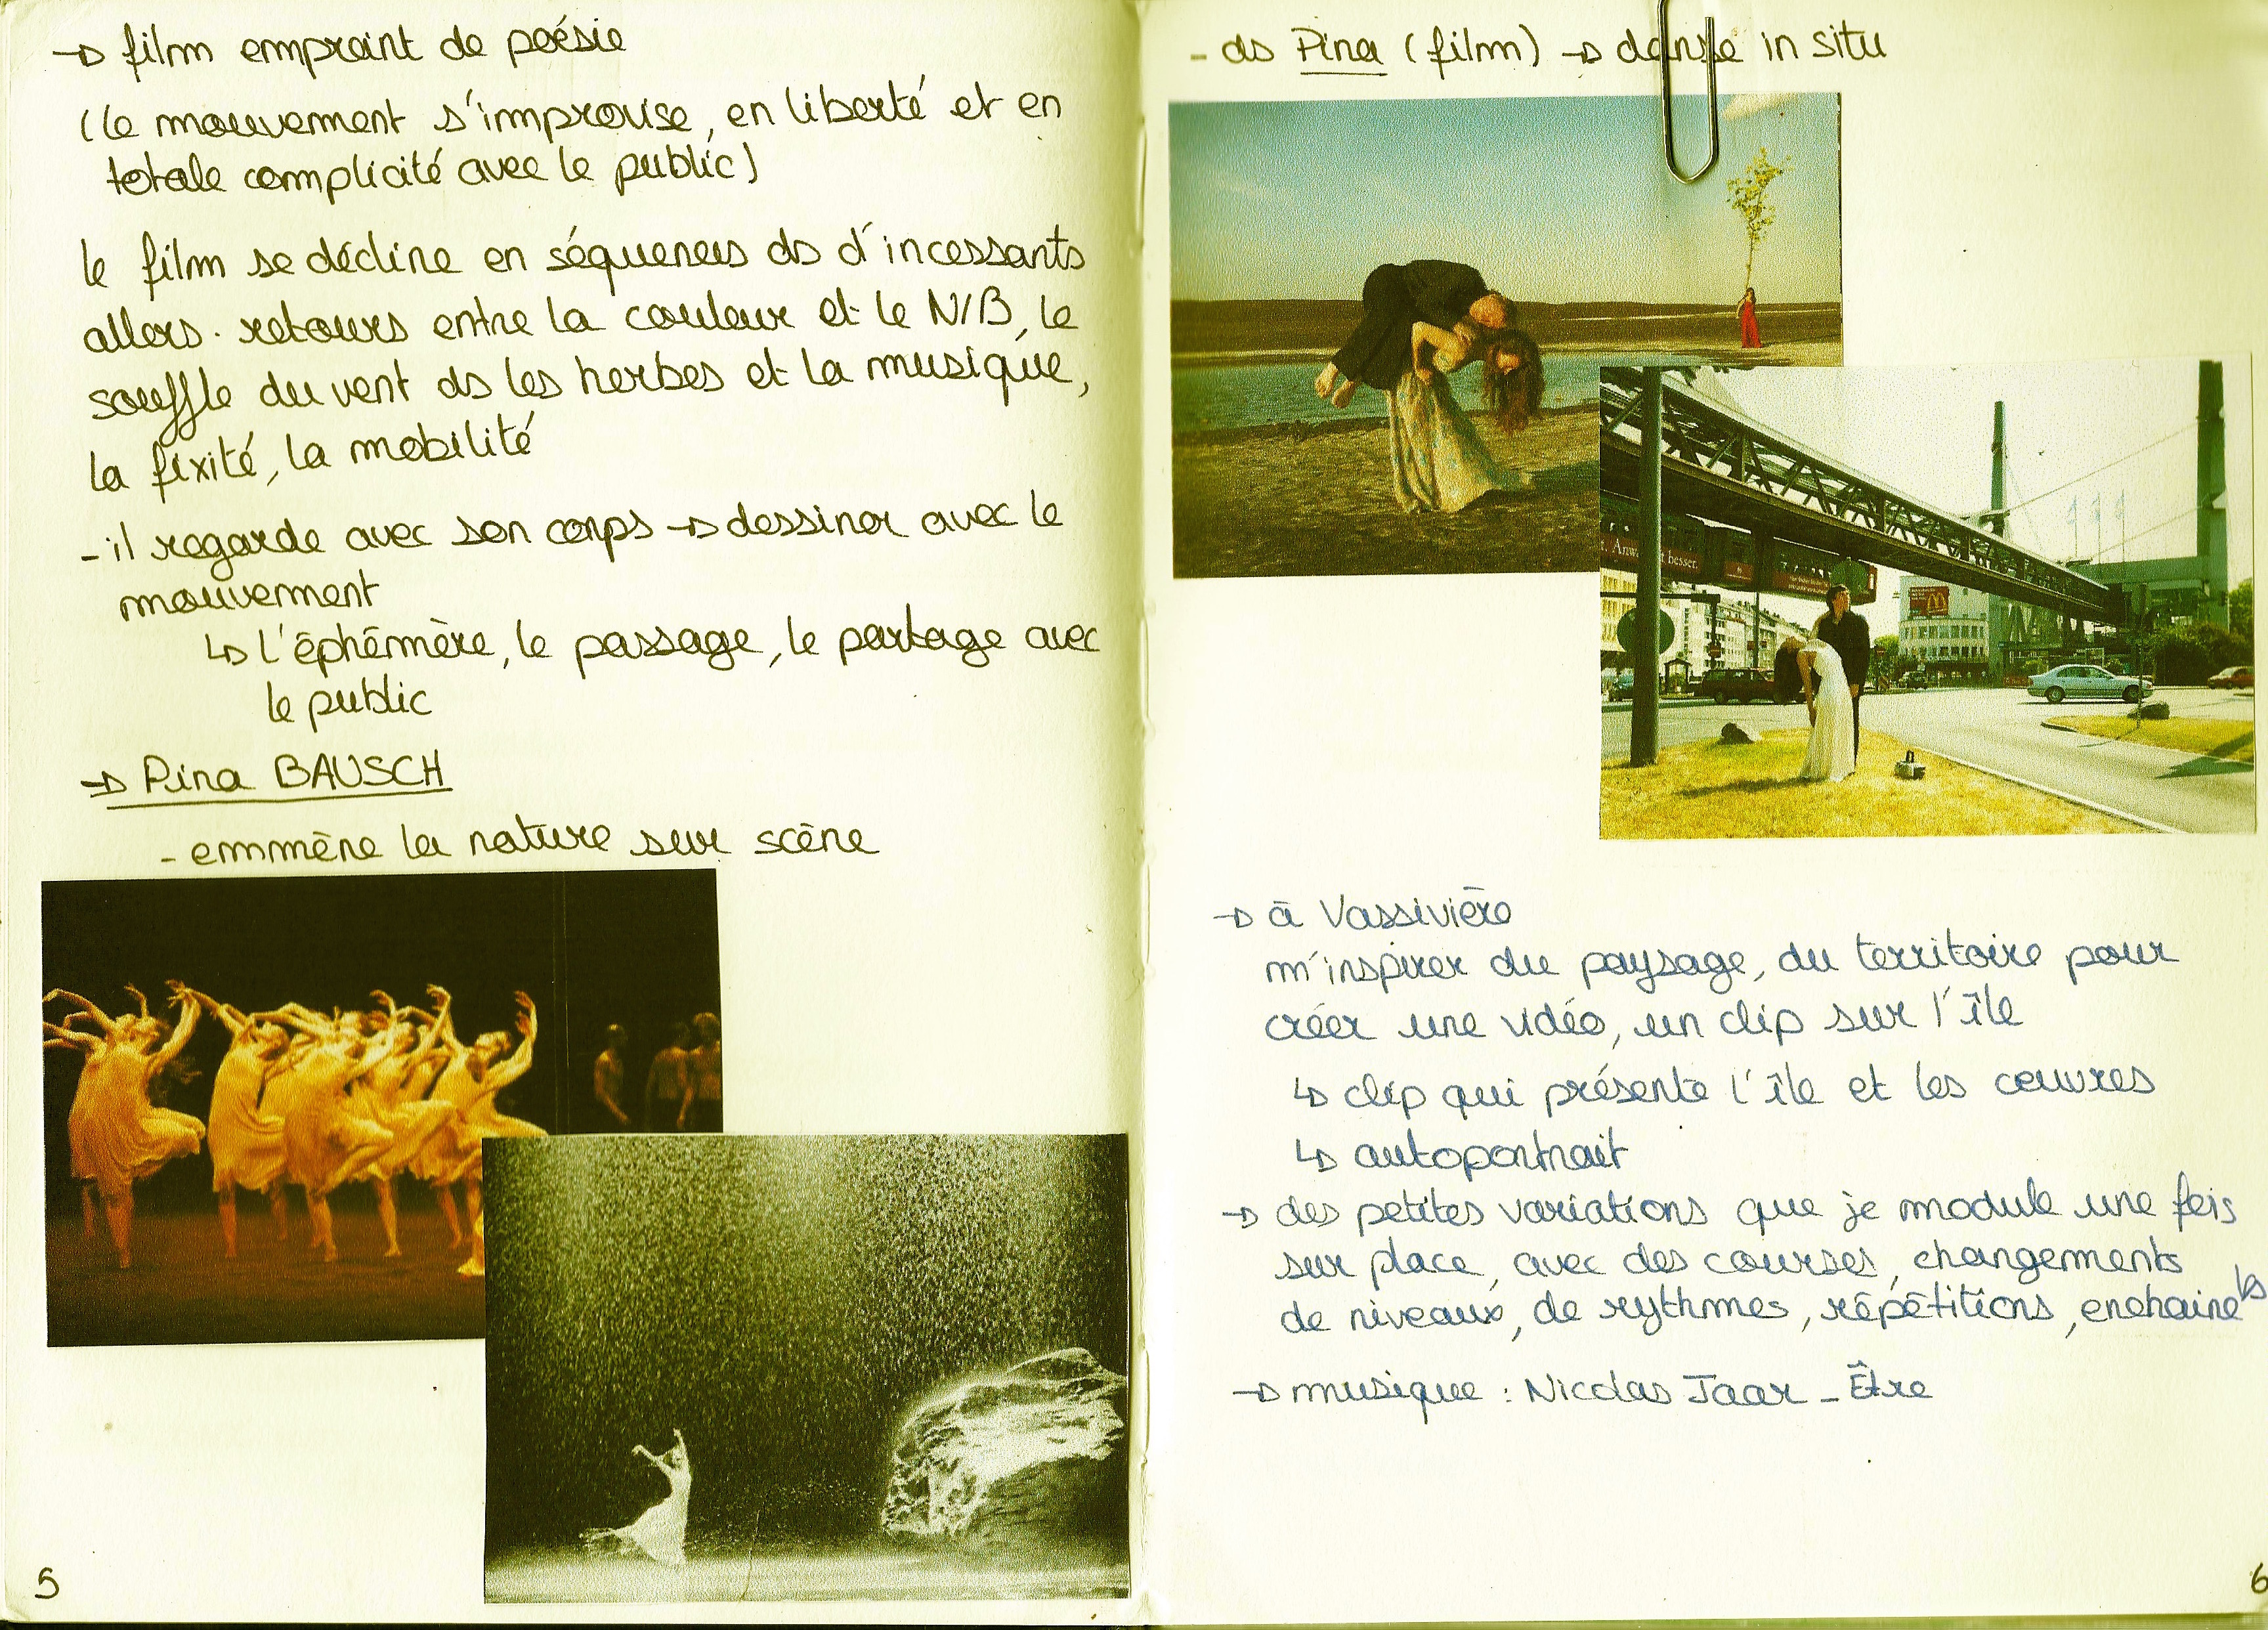 → film empraint de poésie
(le mouvement s'improvise, en liberté et en
totale complicité avec le public)
le film se décline en séquences ds d'incessants
allers-retours entre la couleur et le N/B, le
souffle du vent ds les herbes et la musique,
la fixité, la mobilité
- il regarde avec son corps → dessiner avec le
mouvement
↳ l'éphémère, le passage, le partage avec
le public
→ Pina BAUSCH
- emmène la nature sur scène
5
- ds Pina (film) → danse in situ
besser.
→ à Vassivière
m'inspirer du paysage, du territoire pour
créer une vidéo, un clip sur l'île
↳ clip qui présente l'île et les œuvres
↳ autoportrait
→ des petites variations que je module une fois
sur place, avec des courses, changements
de niveaux, de rythmes, répétitions, enchaine
→ musique : Nicolas Jaar - Être
6